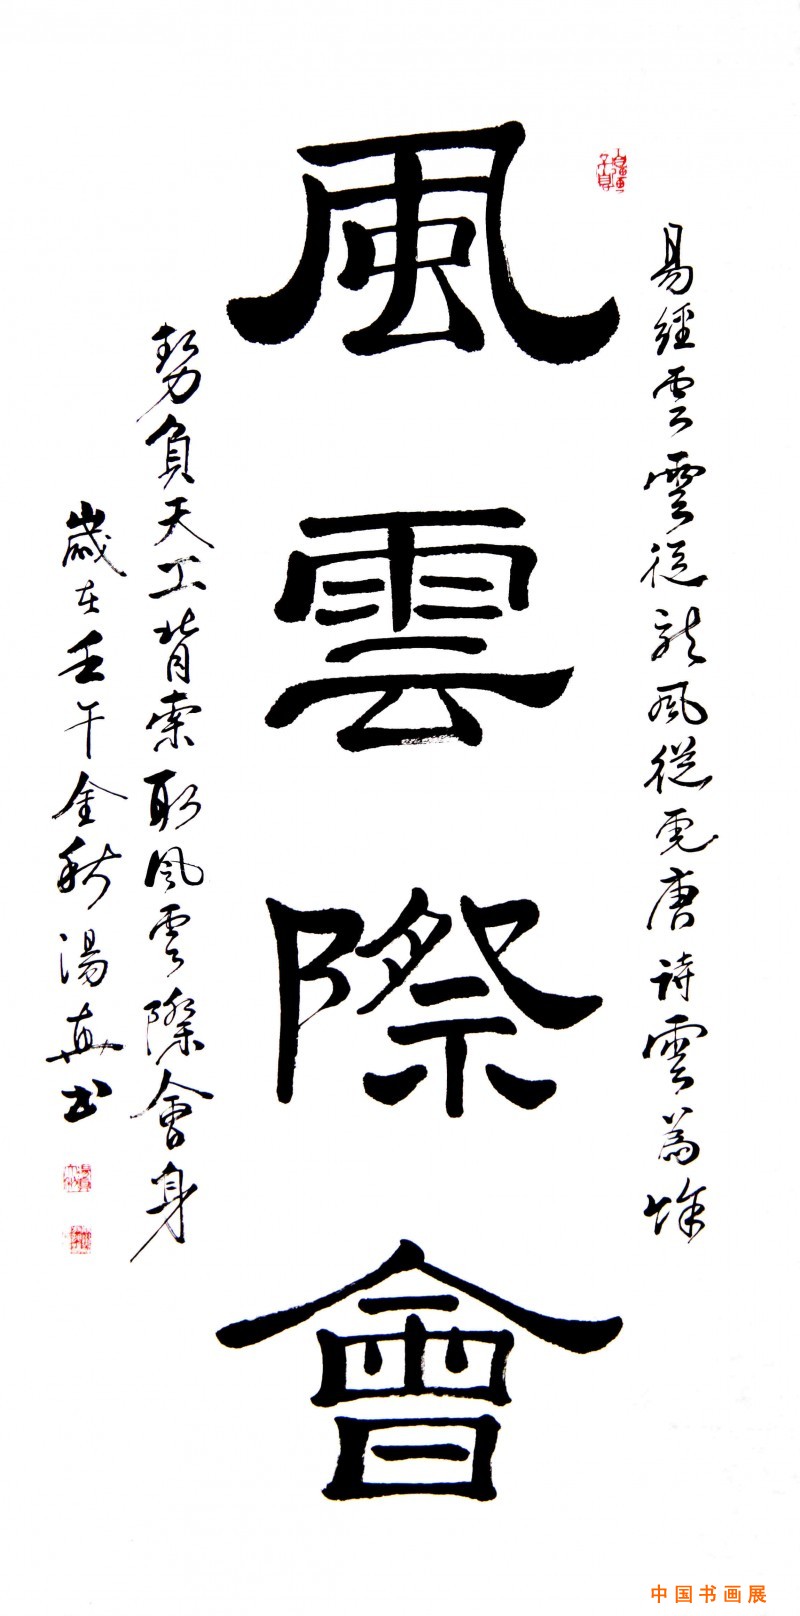 風雲際會
易經雲雲從龍風從虎唐詩雲為
勢負天工背索取風雲際會身
歲在壬午金秋湯真書
中国书画展